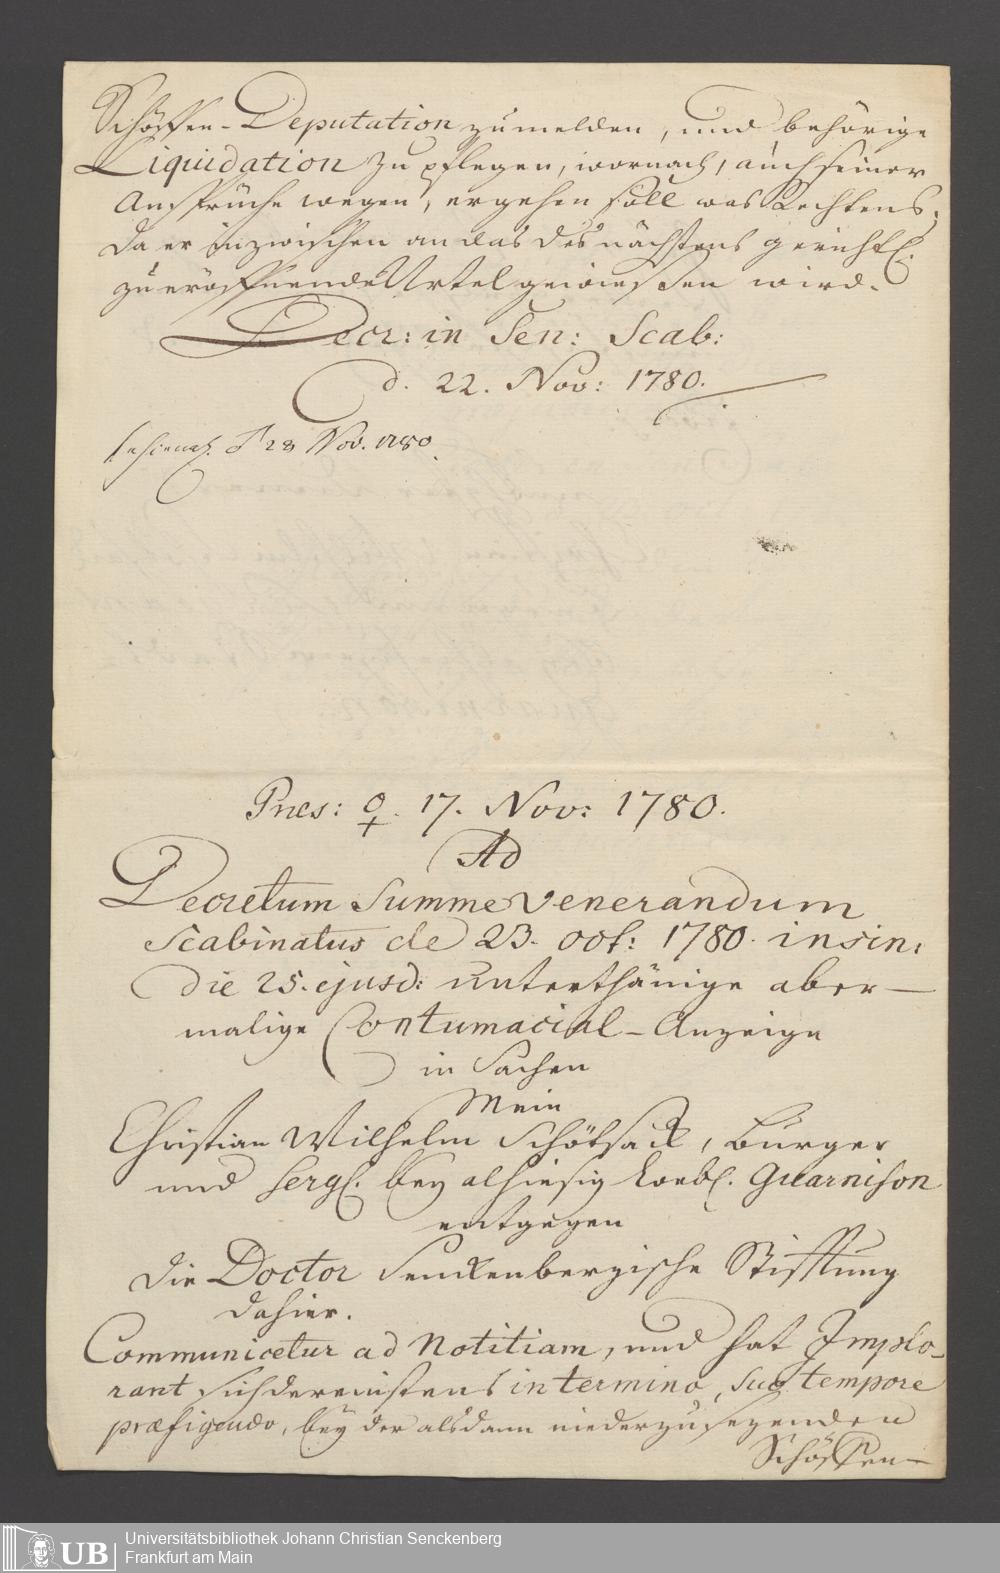 Schöffen-Deputation zumelden, und behörige
Liquidation zu pflegen, wornach, auch seiner
Ansprüche wegen, ergehen soll was Rechtens,
da er inzwischen an das des nächstens gerichtl.
zu eröffnende Urtel gewiesen wird.
Decr: in Sen: Scab:
d. 22. Nov: 1780.
28 Nov. 1780.
Præs: ♀. 17. Nov: 1780.
Ad
Decretum Summe venerandum
Scabinatus de 23. oct: 1780. insin:
die 25. ejusd: unterthänige aber-
malige Contumacial-Anzeige
in Sachen
Mein
Christian Wilhelm Schötsack, Burger
und Serg. bey alhiesig Loebl. Guarnison
entgegen
die Doctor Senckenbergische Stifftung
dahier.
Communicetur ad Notitiam, und hat Implo-
rant sich dereinstens in termino, suo tempore
præfigendo, bey der alsdann niederzusezenden
Schöffen-
UB
Universitätsbibliothek Johann Christian Senckenberg
Frankfurt am Main